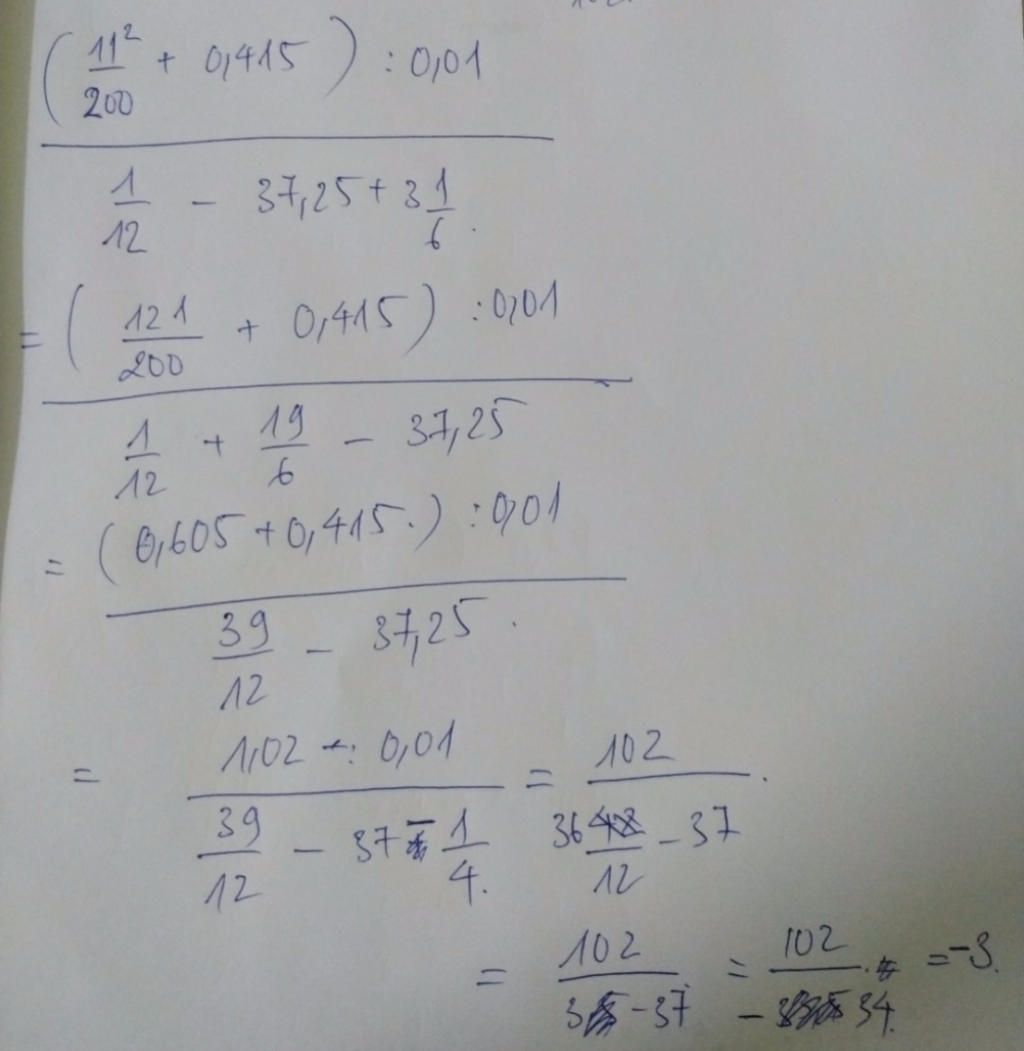 ( 11² / 200 + 0,415 ) : 0,01
1/12 - 37,25 + 3 1/6.
= ( 121/200 + 0,415 ) : 0,01
1/12 + 19/6 - 37,25
= ( 0,605 + 0,415. ) : 0,01
39/12 - 37,25.
= 1,02 : 0,01 = 102.
39/12 - 37 - 1/4. 36/12 - 37
= 102 = 102 = -3.
3 - 37 - 34.